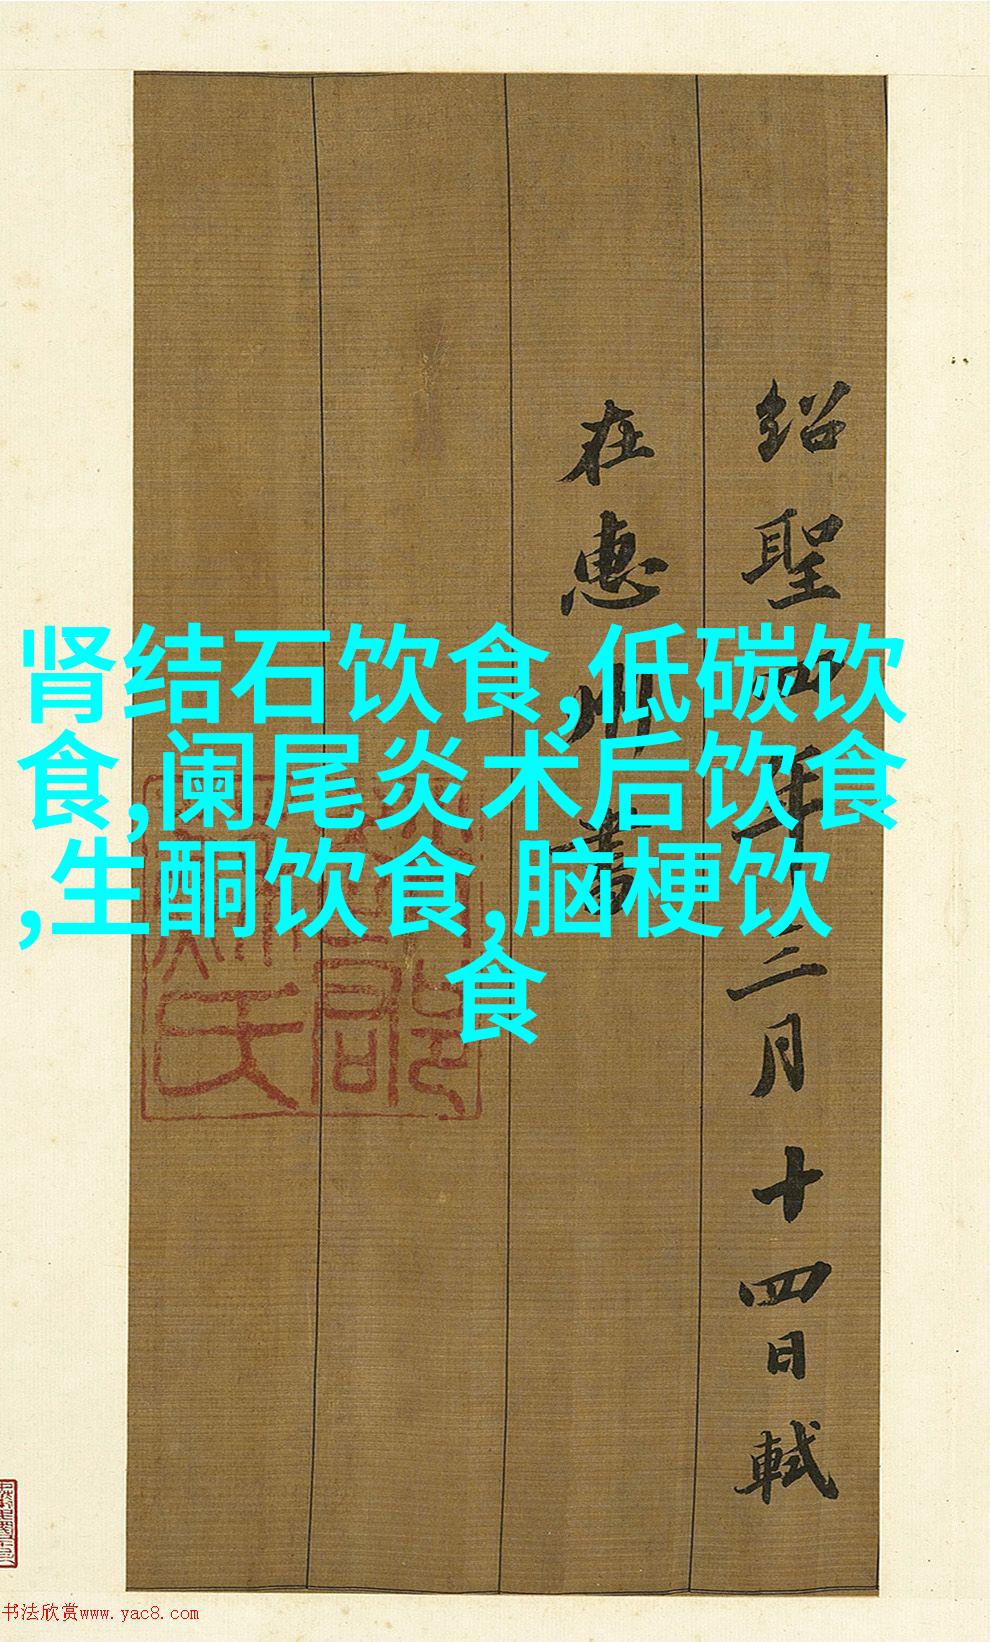 肾结石饮食,低碳饮
食,阑尾炎术后饮食
,生酮饮食,脑梗饮
食
紹聖四年三月十四日軾
在惠州書
书法欣赏www.yac8.com